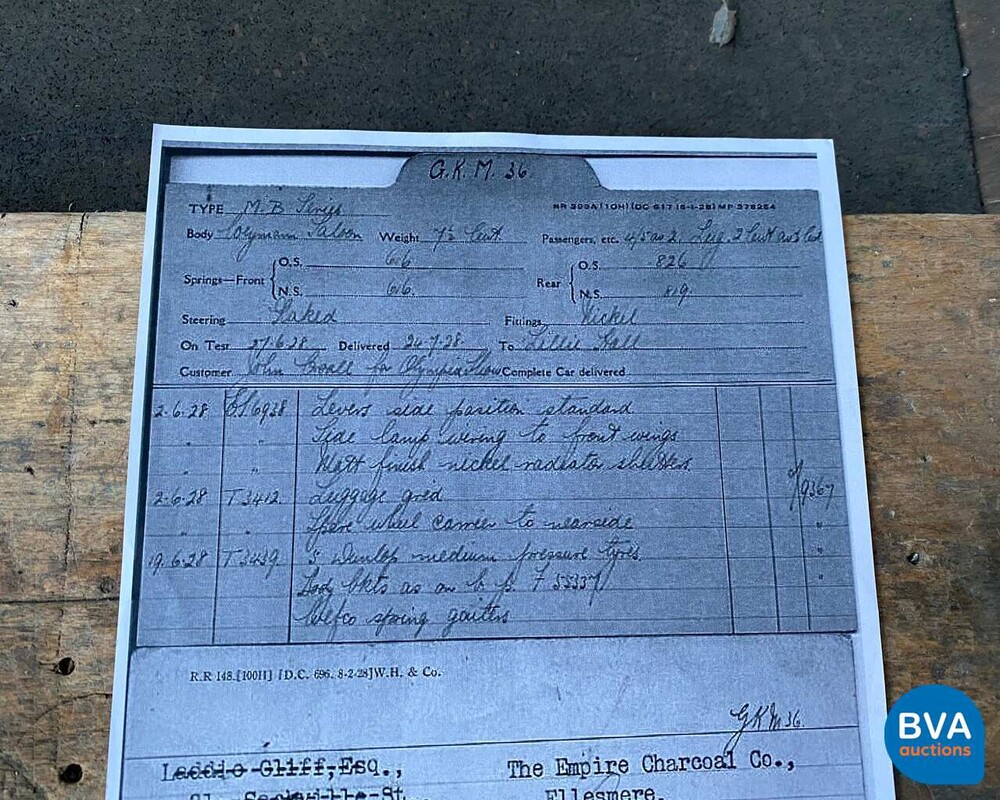 G.K.M. 36
TYPE M.B Series RR 399A (10H) (DC 617 16-1-28) MP 378254
Body Weymann Saloon Weight 7½ Cwt. Passengers, etc. 4/5 as 2. Lug. 2 Cwt as 3 Cwt
Springs—Front O.S. 616 Rear O.S. 826
N.S. 616. N.S. 819.
Steering Raked Fittings Nickel
On Test 27.6.28. Delivered 24.7.28. To Lillie Hall
Customer John Croall for Olympia Show Complete Car delivered
2.6.28 6938 Levers side position standard
" " Side lamp wiring to front wings
" " Matt finish nickel radiator shutters.
2.6.28 T3412 Luggage grid 9367
" " Spare wheel carrier to nearside "
19.6.28 T3439 5 Dunlop medium pressure tyres. "
Body bkts as on b.p. F 55337 "
Wefco spring gaiters
R.R 148. [100H] [D.C. 696. 8-2-28] W.H. & Co.
GKM 36.
Laddie Cliff, Esq., The Empire Charcoal Co.,
St. Ellesmere.
BVA
auctions